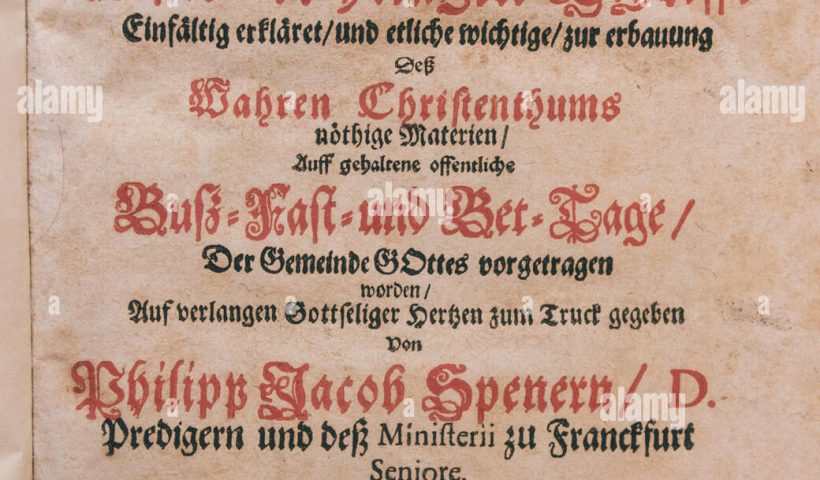 Einfältig erkläret/und etliche wichtige/zur erbauung
Deß
Wahren Christenthums
nöthige Materien/
Auff gehaltene offentliche
Buß-Fast-und Bet-Tage/
Der Gemeinde GOttes vorgetragen
worden/
Auf verlangen Gottseliger Hertzen zum Truck gegeben
Von
Philipp Jacob Spenern/ D.
Predigern und deß Ministerii zu Franckfurt
Seniore.
alamy
alamy
alamy
alamy
a
a
a
a
a
a
a